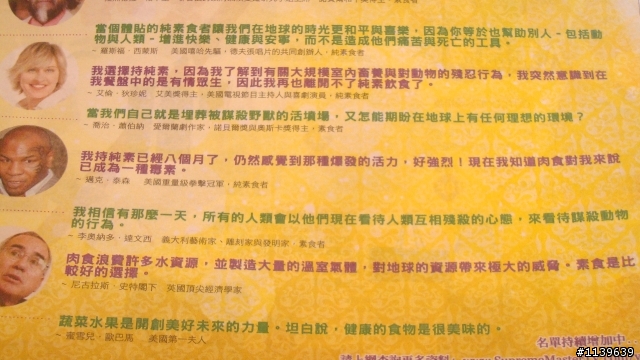 當個體貼的純素食者讓我們在地球的時光更和平與喜樂，因為你等於也幫助別人－包括動
物與人類－增進快樂、健康與安寧，而不是造成他們痛苦與死亡的工具。
~ 羅素福．西蒙斯　美國嘻哈先驅，德夫張唱片的共同創辦人，純素食者
我選擇持純素，因為我了解到有關大規模室內畜養與對動物的殘忍行為，我突然意識到在
我餐盤中的是有情眾生，因此我再也離開不了純素飲食了。
~ 艾倫．狄珍妮　艾美獎得主，美國電視節目主持人與喜劇演員，純素食者
當我們自己就是埋葬被謀殺野獸的活墳場，又怎能期盼在地球上有任何理想的環境？
~ 喬治．蕭伯納　愛爾蘭劇作家，諾貝爾獎與奧斯卡獎得主，素食者
我持純素已經八個月了，仍然感覺到那種爆發的活力，好強烈！現在我知道肉食對我來說
已成為一種毒素。
~ 邁克．泰森　美國重量級拳擊冠軍，純素食者
我相信有那麼一天，所有的人類會以他們現在看待人類互相殘殺的心態，來看待謀殺動物
的行為。
~ 李奧納多．達文西　義大利藝術家、雕刻家與發明家，素食者
肉食浪費許多水資源，並製造大量的溫室氣體，對地球的資源帶來極大的威脅。素食是比
較好的選擇。
~ 尼古拉斯．史特閣下　英國頂尖經濟學家
蔬菜水果是開創美好未來的力量。坦白說，健康的食物是很美味的。
~ 蜜雪兒．歐巴馬　美國第一夫人
名單持續增加中
#1139639